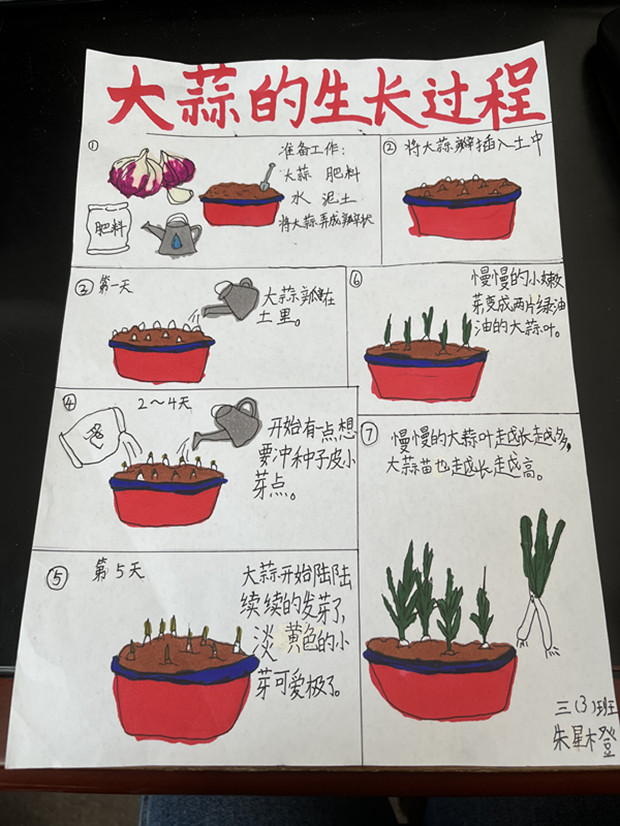 大蒜的生长过程
①
准备工作:
大蒜 肥料
水 泥土
将大蒜弄成瓣状
肥料
② 将大蒜瓣插入土中
③ 第一天
大蒜瓣在
土里。
④ 2～4天
开始有一点想
要冲种子皮小
芽点。
⑤ 第5天
大蒜开始陆陆
续续的发芽了,
淡黄色的小
芽可爱极了。
⑥
慢慢的小嫩
芽变成两片绿油
油的大蒜叶。
⑦
慢慢的大蒜叶越长越多,
大蒜苗也越长越高。
三(3)班
朱星橙